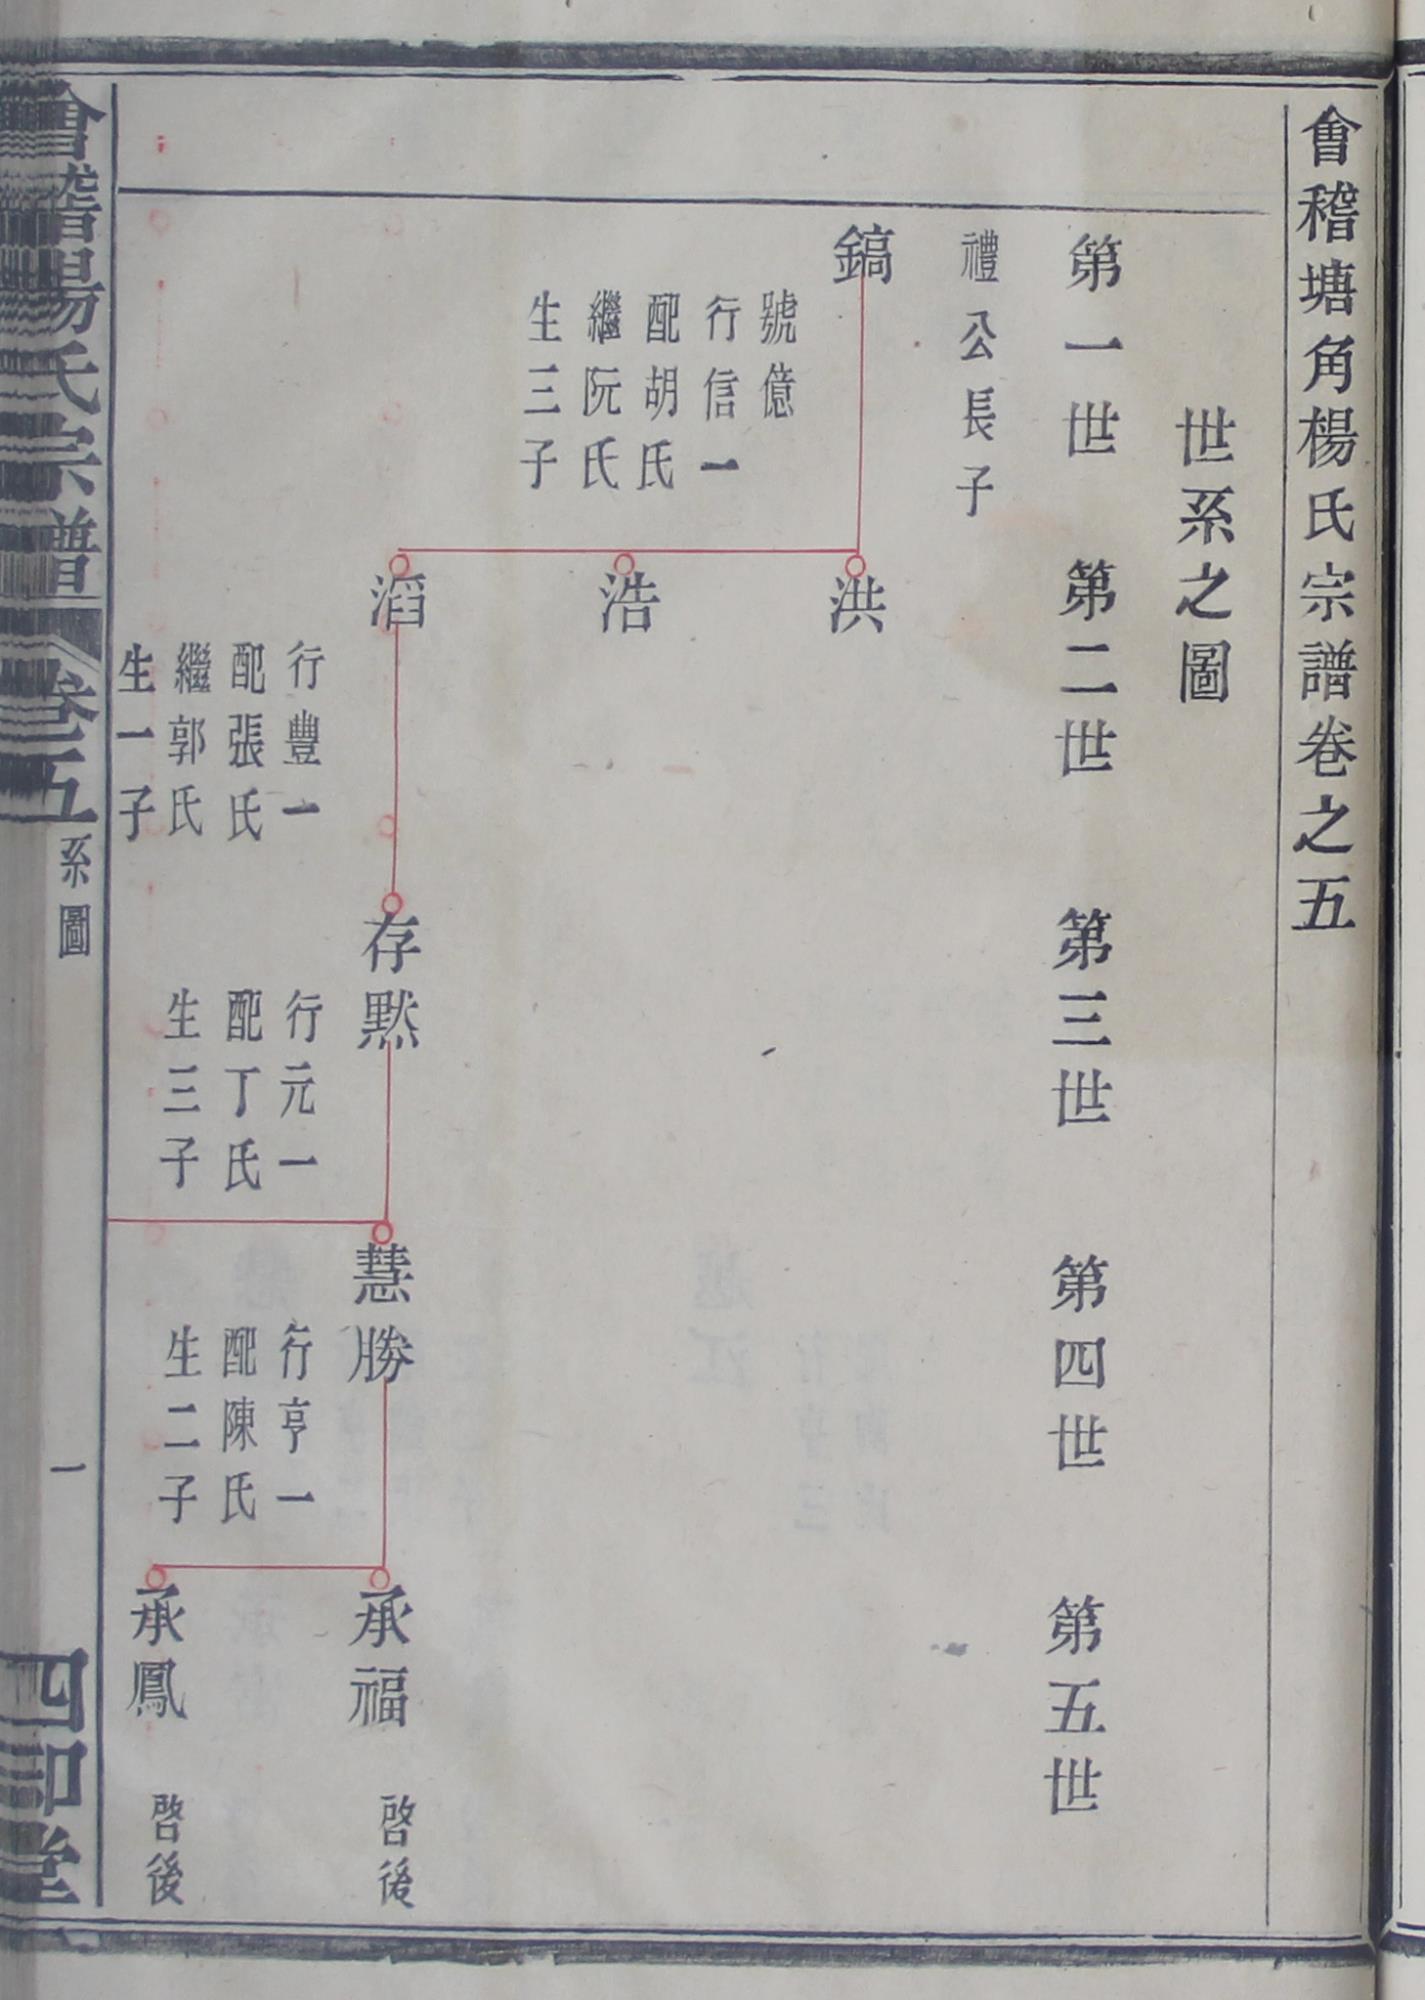 會稽塘角楊氏宗譜卷之五
世系之圖
第一世
第二世
第三世
第四世
第五世
禮公長子
鎬
號億
行信一
配胡氏
繼阮氏
生三子
洪
浩
滔
行豐一
配張氏
繼郭氏
生一子
存默
行元一
配丁氏
生三子
慧勝
行亨一
配陳氏
生二子
承福
啓後
承鳳
啓後
會稽楊氏宗譜
卷五
系圖
一
四知堂